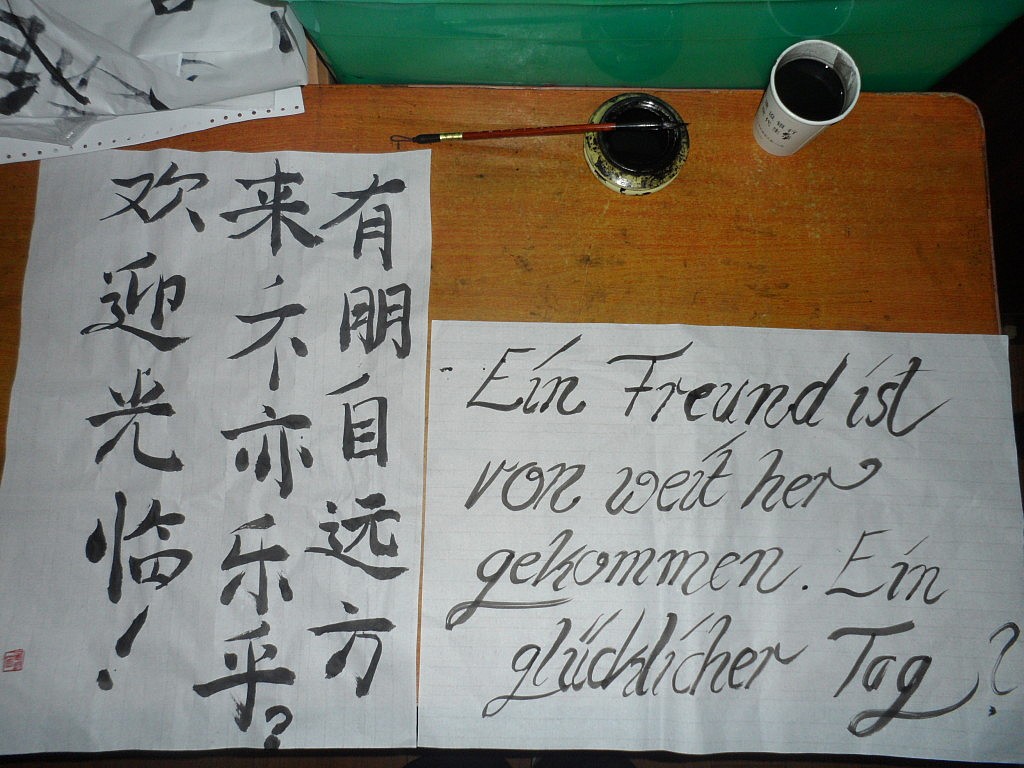 有朋自远方
来不亦乐乎?
欢迎光临!
Ein Freund ist
von weit her
gekommen. Ein
glücklicher Tag?